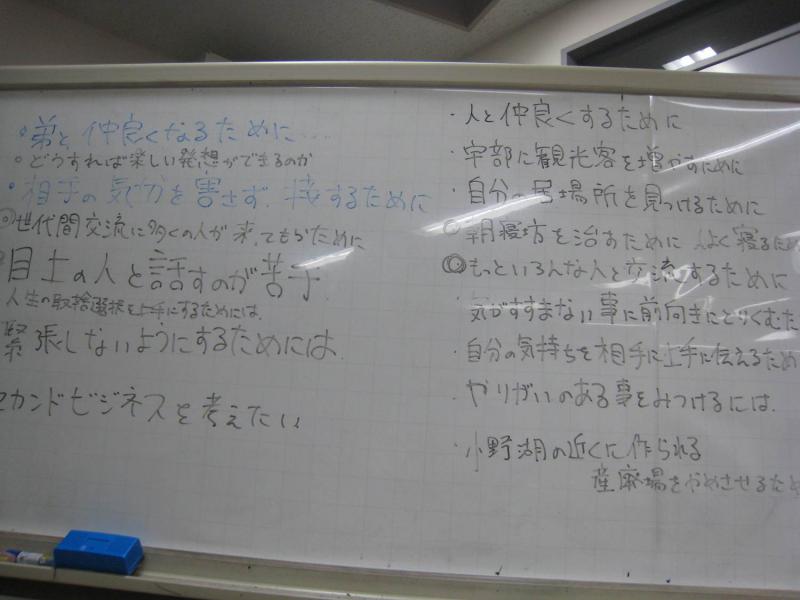 弟と仲良くなるために....
どうすれば楽しい発想ができるのか
相手の気分を害さず、接するために
◎世代間交流に多くの人が来てもらために
目上の人と話すのが苦手
人生の取捨選択を上手にするためには.
緊張しないようにするためには.
セカンドビジネスを考えたい
・人と仲良くするために
・宇部に観光客を増やすために
・自分の居場所を見つけるために
○朝寝坊を治すために(よく寝るため
◎もっといろんな人と交流するために
・気がすすまない事に前向きにとりくむた
・自分の気持ちを相手に上手に伝えるため
・やりがいのある事をみつけるには.
・小野湖の近くに作られる
産廃場をやめさせるため